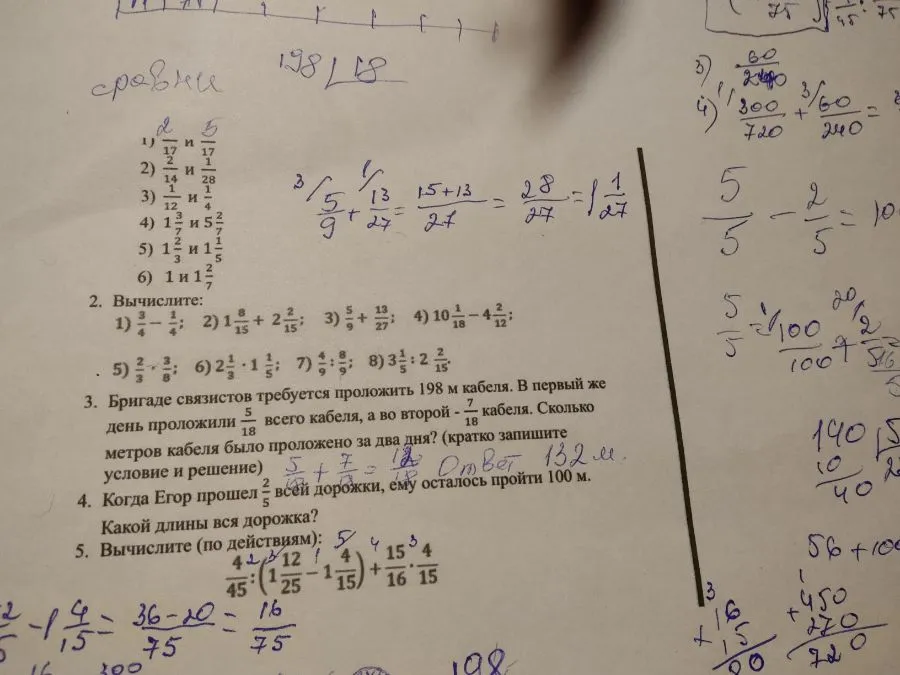 сравни 198 18
1) 2/17 и 5/17
2) 2/14 и 1/28
3) 1/12 и 1/4
4) 1 3/7 и 5 2/7
5) 1 2/3 и 1 1/5
6) 1 и 1 2/7
5/9 + 13/27 = 15+13/27 = 28/27 = 1 1/27
2. Вычислите:
1) 3/4 − 1/4; 2) 1 8/15 + 2 2/15; 3) 5/9 + 13/27; 4) 10 1/18 − 4 2/12;
5) 2/3 · 3/8; 6) 2 1/3 · 1 1/5; 7) 4/9 : 8/9; 8) 3 1/5 : 2 2/15.
3. Бригаде связистов требуется проложить 198 м кабеля. В первый же
день проложили 5/18 всего кабеля, а во второй - 7/18 кабеля. Сколько
метров кабеля было проложено за два дня? (кратко запишите
условие и решение) 5/18 + 7/18 = Ответ 132 м.
4. Когда Егор прошел 2/5 всей дорожки, ему осталось пройти 100 м.
Какой длины вся дорожка?
5. Вычислите (по действиям):
4/45 : (1 12/25 − 1 4/15) + 15/16 · 4/15
− 1 4/15 = 36−20/75 = 16/75
300
198
3) 60/240
4) 300/720 + 60/240 =
5/5 − 2/5 =
5/5 = 100/100
140
40
56 + 100
16
+ 15
90
+ 450
270
720